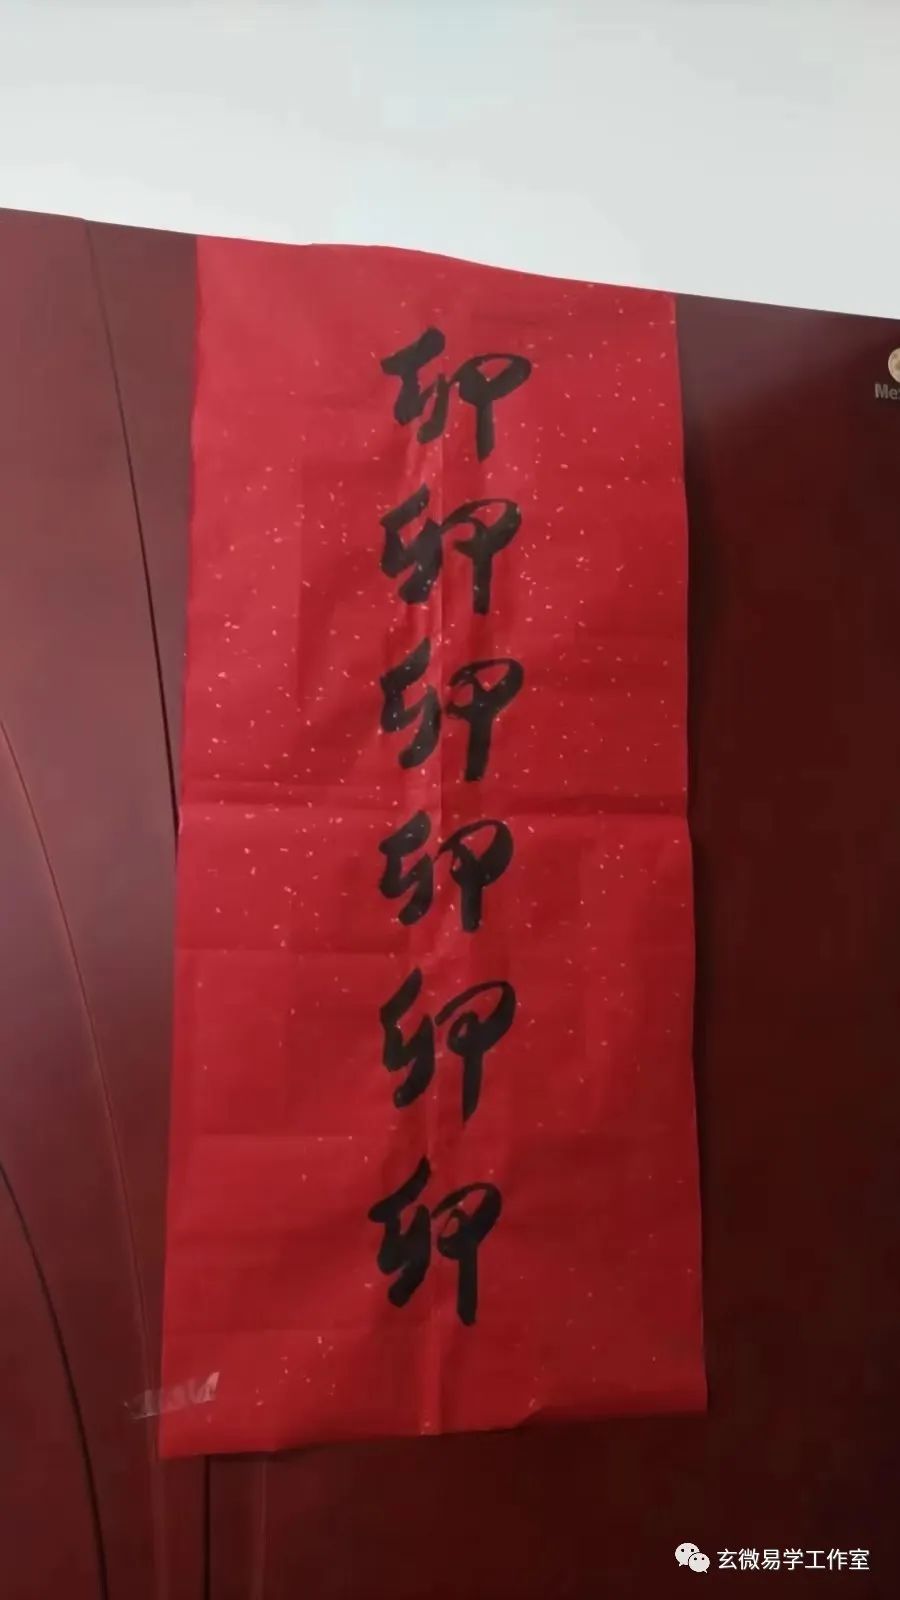 卯
卯
卯
卯
卯
卯
玄微易学工作室